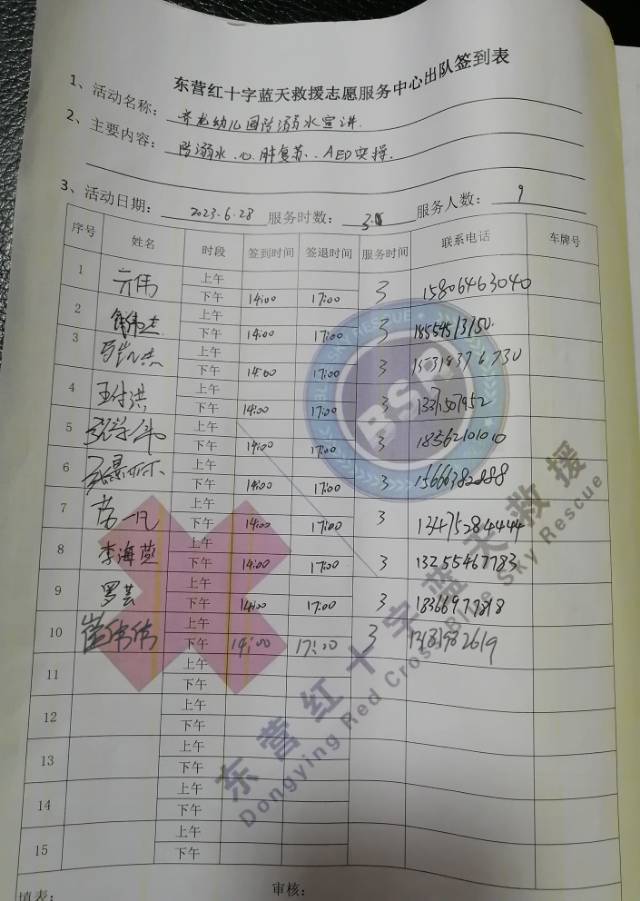 东营红十字蓝天救援志愿服务中心出队签到表
1、活动名称：幼儿园防溺水宣讲.
2、主要内容：防溺水.心肺复苏.AED实操.
3、活动日期：2023.6.28 服务时数：3 服务人数：9
序号 姓名 时段 签到时间 签退时间 服务时间 联系电话 车牌号
1 上午
下午 14:00 17:00 3 15806463040
2 上午
下午 14:00 17:00 3
3 上午
下午 14:00 17:00 3
4 王付洪 上午
下午 14:00 17:00 3
5 上午
下午 14:00 17:00 3 18562101010
6 上午
下午 14:00 17:00 3 15666382888
7 上午
下午 14:00 17:00 3 13475284444
8 李海燕 上午
下午 14:00 17:00 3 13255467783
9 罗芸 上午
下午 14:00 17:00 3
10 上午
下午 14:00 17:00 3
11 上午
下午
12 上午
下午
13 上午
下午
14 上午
下午
15 上午
下午
填表： 审核：
BSR
BLUE SKY RESCUE
东营红十字蓝天救援
Dongying Red Cross Blue Sky Rescue